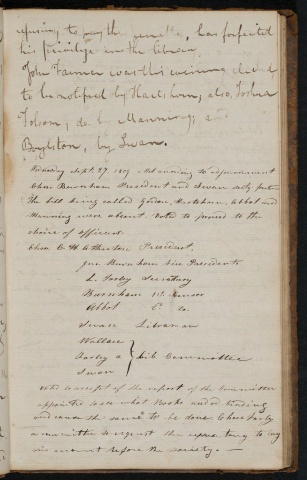 refusing to pay the same, has forfeited
his privilege in the library.
John Farmer was this evening
to be notified by Hartshorn; also, Joshua
Folsom, do by Manning; and
Boylston, by Swan.
Wednesday Sept. 27. 1809. Met according to adjournment
Chose Burnham President and Swan
The bill being called Gordon, Hartshorn, Abbot and
Manning were absent. Voted to proceed to the
choice of officers.
Chose C. H. Atherton President,
Burnham vice President
L. Farley Secretary
Burnham 1st Censor
Abbot 2d do.
Swan Librarian
Wallace
Farley & Lib. Committee
Swan
Voted to accept of the report of the Committee
appointed to see what Books need binding
and cause the same to be done. Chose Farley
a committee to request the to lay
his account before the society. —